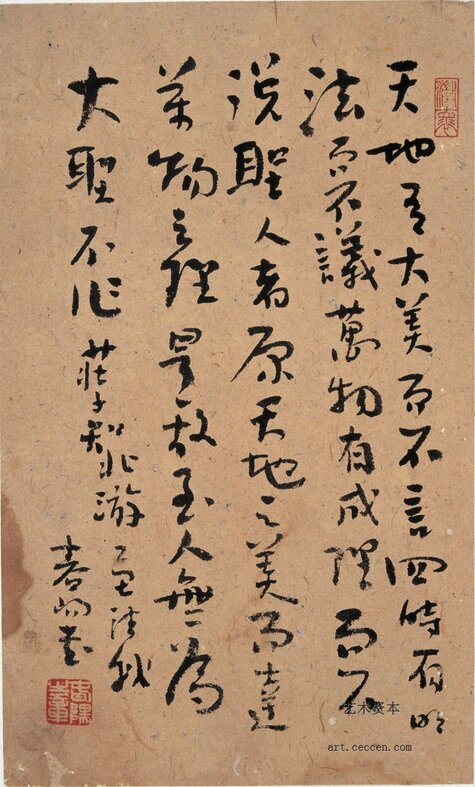 天地有大美而不言四時有明
法而不議萬物有成理而不
说聖人者原天地之美而達
萬物之理是故至人無為
大聖不作 莊子知北游
艺术资本
art.ceccen.com